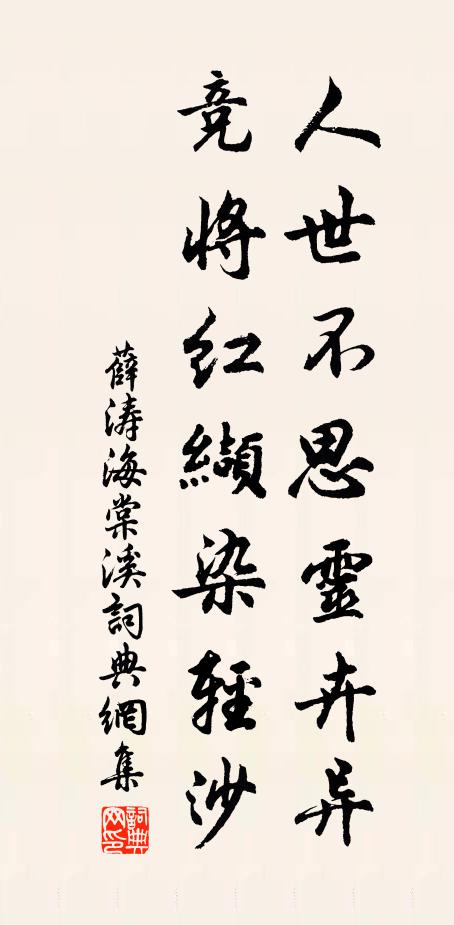 人世不思靈卉异
竞將紅纈染輕沙
薛涛海棠溪詞典網集
詞典网印